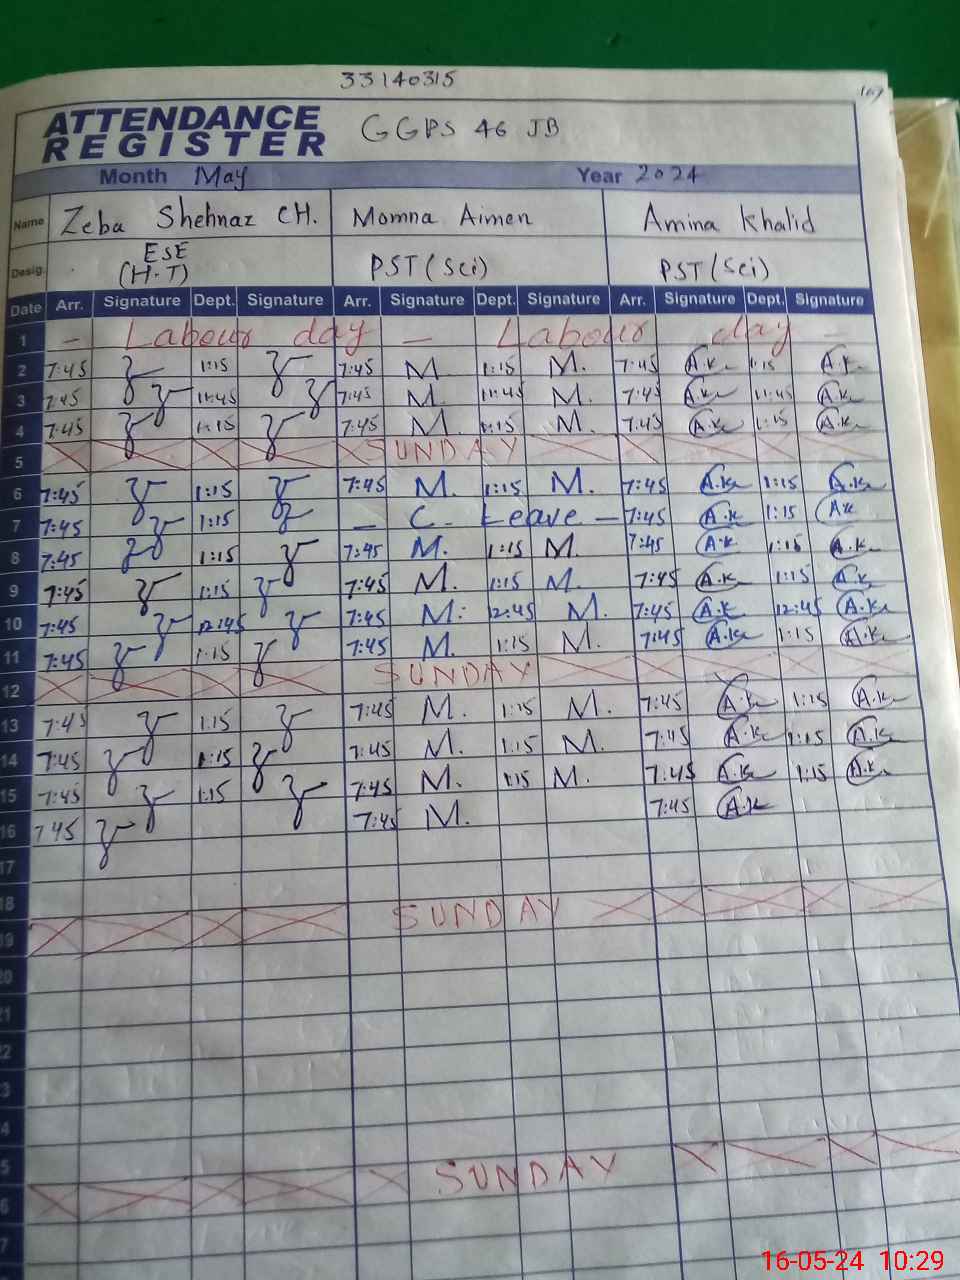 33140315
167
ATTENDANCE REGISTER GGPS 46 JB
Month May Year 2024
Name Zeba Shehnaz CH. Momna Aimen Amina Khalid
Desig. ESE (H.T) PST (Sci) PST (Sci)
Date Arr. Signature Dept. Signature Arr. Signature Dept. Signature Arr. Signature Dept. Signature
1 – Labour day – Labour day –
2 7:45 1:15 7:45 M. 1:15 M. 7:45 A.K 1:15 A.K
3 7:45 11:45 7:45 M. 11:45 M. 7:45 A.K 11:45 A.K
4 7:45 1:15 7:45 M. 1:15 M. 7:45 A.K 1:15 A.K
5 SUNDAY
6 7:45 1:15 7:45 M. 1:15 M. 7:45 A.K 1:15 A.K
7 7:45 1:15 – C. Leave – 7:45 A.K 1:15 A.K
8 7:45 1:15 7:45 M. 1:15 M. 7:45 A.K 1:15 A.K
9 7:45 1:15 7:45 M. 1:15 M. 7:45 A.K 1:15 A.K
10 7:45 12:45 7:45 M. 12:45 M. 7:45 A.K 12:45 A.K
11 7:45 1:15 7:45 M. 1:15 M. 7:45 A.K 1:15 A.K
12 SUNDAY
13 7:45 1:15 7:45 M. 1:15 M. 7:45 A.K 1:15 A.K
14 7:45 1:15 7:45 M. 1:15 M. 7:45 A.K 1:15 A.K
15 7:45 1:15 7:45 M. 1:15 M. 7:45 A.K 1:15 A.K
16 7:45 7:45 M. 7:45 A.K
17
18
19 SUNDAY
20
21
22
3
4
5
6 SUNDAY
7
16-05-24 10:29